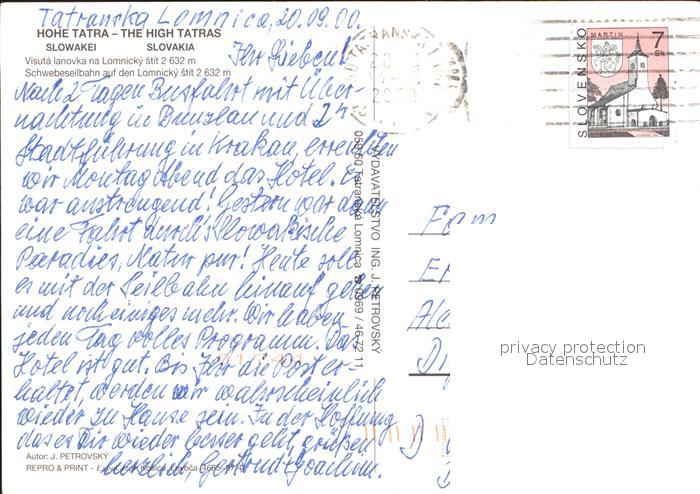 Tatranska Lomnica, 20.09.00.
HOHE TATRA – THE HIGH TATRAS
SLOWAKEI SLOVAKIA
Visutá lanovka na Lomnický štít 2 632 m
Schwebeseilbahn auf den Lomnický štít 2 632 m
Ihr Lieben!
Nach 2 Tagen Busfahrt mit Über-
nachtung in Bunzlau und 2 h
Stadtführung in Krakau, erreichten
wir Montag Abend das Hotel. Es
war anstrengend! Gestern war dann
eine Fahrt durch's Slowakische
Paradies, Natur pur! Heute soll
es mit der Seilbahn hinauf gehen
und noch einiges mehr. Wir haben
jeden Tag volles Programm. Das
Hotel ist gut. Bis Ihr die Post er-
haltet, werden wir wahrscheinlich
wieder zu Hause sein. In der Hoffnung
das es Dir wieder besser geht, grüßen
herzlich, Gertrud + Joachim.
Autor: J. PETROVSKÝ
REPRO & PRINT -
VYDAVATEĽSTVO ING. J. PETROVSKÝ
059 60 Tatranská Lomnica ☎ 0969 / 46 72 11
SLOVENSKO
MARTIN
7
Sk
privacy protection
Datenschutz